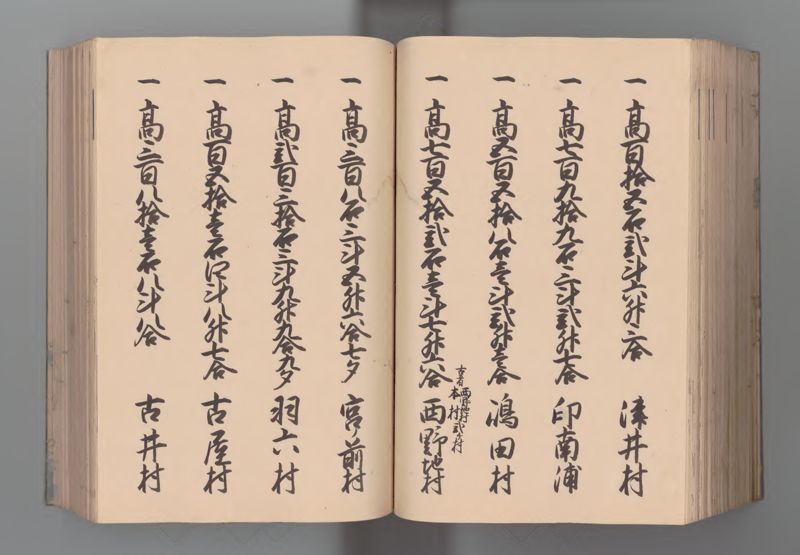 一 高百拾五石弐斗六升三合 津井村
一 高七百九拾九石三斗弐升七合 印南浦
一 高五百五拾八石壱斗弐升壱合 嶋田村
一 高七百五拾弐石壱斗七升六合 西野地村
古者西野地村
本村弐村
一 高三百八石三斗五升六合七夕 宮ノ前村
一 高弐百三拾石三斗九升九合九夕 羽六村
一 高百五拾壱石四斗八升七合 古屋村
一 高三百八拾壱石八斗八合 古井村